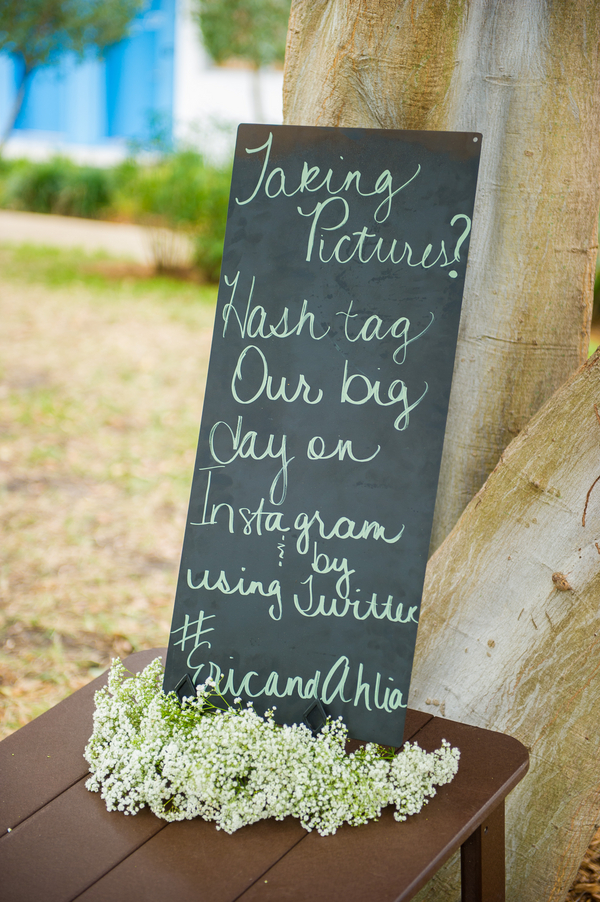 Taking
Pictures?
Hash tag
Our big
day on
Instagram
& by
using Twitter
#
EricandAhlia